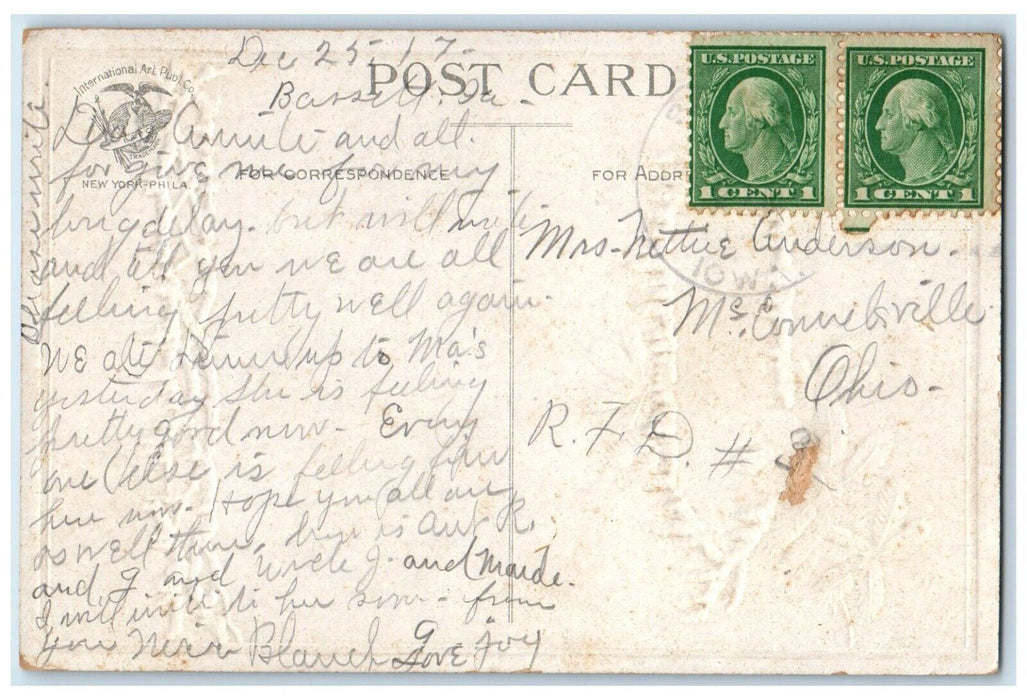 Dec 25, 17.
Bassett. Ia.
International Art Publ. Co.
TRADEMARK
NEW YORK-PHILA.
POST CARD
FOR CORRESPONDENCE
FOR ADDR
U.S. POSTAGE
1 CENT 1
U.S. POSTAGE
1 CENT 1
IOWA.
Dear Auntie and all.
for give me for my
long delay. but will write
and tell you we are all
feeling pretty well again.
We ate Dinner up to Ma's
yesterday She is feeling
pretty good now. Every
one else is feeling fine
here now. Hope you all are
as well there. how is Aunt R
and J and Uncle J. and Maude.
I will write to her soon - from
your Neice Blanch Love joy
Mrs. Nettie Anderson.
McConnelsville
Ohio.
R. F. D. #